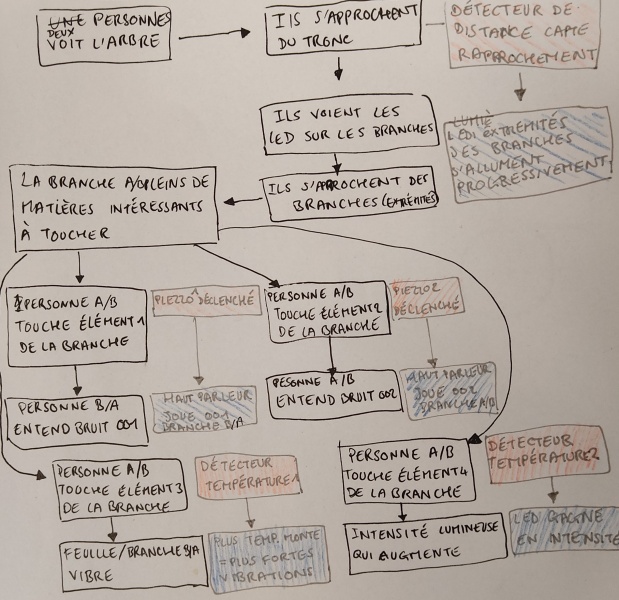 UNE PERSONNES
DEUX
VOIT L'ARBRE
ILS S'APPROCHENT
DU TRONC
DÉTECTEUR DE
DISTANCE CAPTE
RAPPROCHEMENT
ILS VOIENT LES
LED SUR LES BRANCHES
LUMIÈ
LED EXTRÉMITÉS
DES BRANCHES
S'ALLUMENT
PROGRESSIVEMENT
ILS S'APPROCHENT DES
BRANCHES (EXTRÉMITÉS)
LA BRANCHE A PLEINS DE
MATIÈRES INTÉRESSANTS
À TOUCHER
PERSONNE A/B
TOUCHE ÉLÉMENT 1
DE LA BRANCHE
PIEZZO 1 DÉCLENCHÉ
PERSONNE A/B
TOUCHE ÉLÉMENT 2
DE LA BRANCHE
PIEZZO 2
DÉCLENCHÉ
PERSONNE B/A
ENTEND BRUIT 001
HAUT PARLEUR
JOUE 001
BRANCHE B/A
PESONNE A/B
ENTEND BRUIT 002
HAUT PARLEUR
JOUE 002
BRANCHE
PERSONNE A/B
TOUCHE ÉLÉMENT 3
DE LA BRANCHE
DÉTECTEUR
TEMPÉRATURE 1
PERSONNE A/B
TOUCHE ÉLÉMENT 4
DE LA BRANCHE
DÉTECTEUR
TEMPÉRATURE 2
FEUILLE/BRANCHE B/A
VIBRE
PLUS TEMP. MONTE
= PLUS FORTES
VIBRATIONS
INTENSITÉ LUMINEUSE
QUI AUGMENTE
LED GAGNE
EN INTENSITÉ